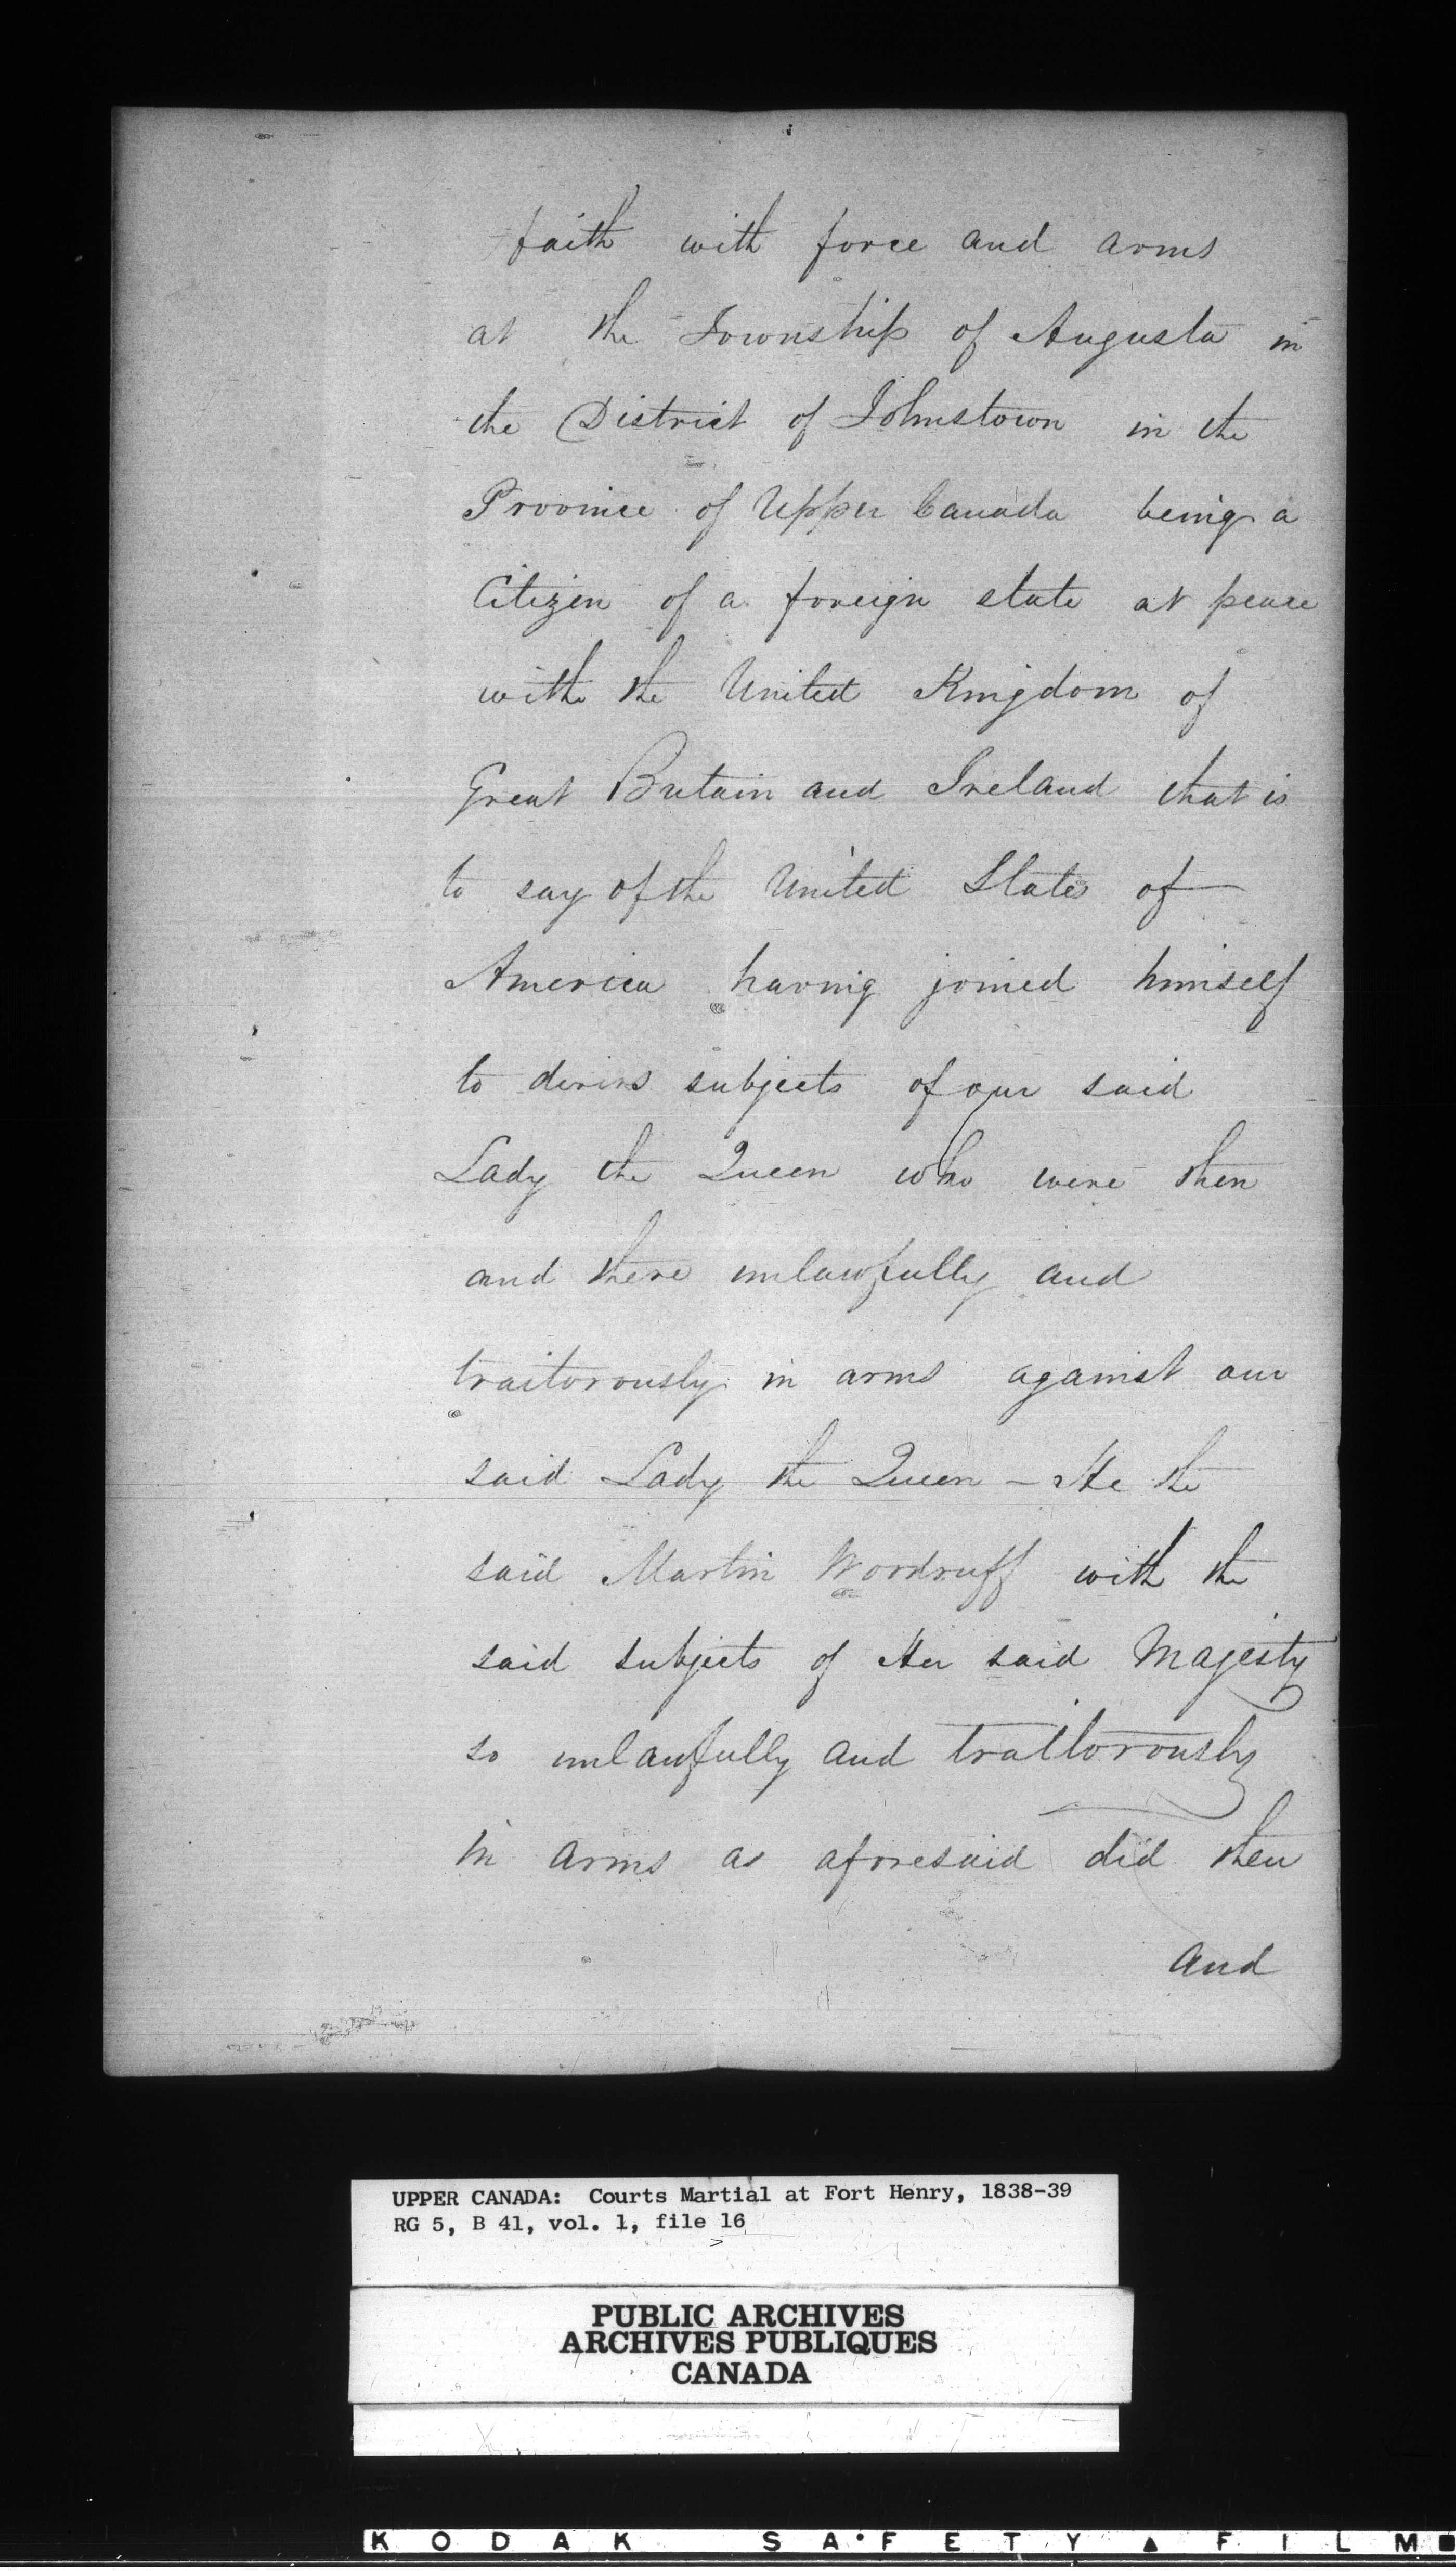 faith with force and arms
at the Township of Augusta in
the District of Johnstown in the
Province of Upper Canada being a
Citizen of a foreign state at peace
with the United Kingdom of
Great Britain and Ireland that is
to say of the United States of
America having joined himself
to divers subjects of our said
Lady the Queen who were then
and there unlawfully and
traitorously in arms against our
said Lady the Queen – He the
said Martin Woodruff with the
said subjects of Her said Majesty
so unlawfully and traitorously
in arms as aforesaid did then
and
UPPER CANADA: Courts Martial at Fort Henry, 1838-39
RG 5, B 41, vol. 1, file 16
PUBLIC ARCHIVES
ARCHIVES PUBLIQUES
CANADA
KODAK SAFETY FILM